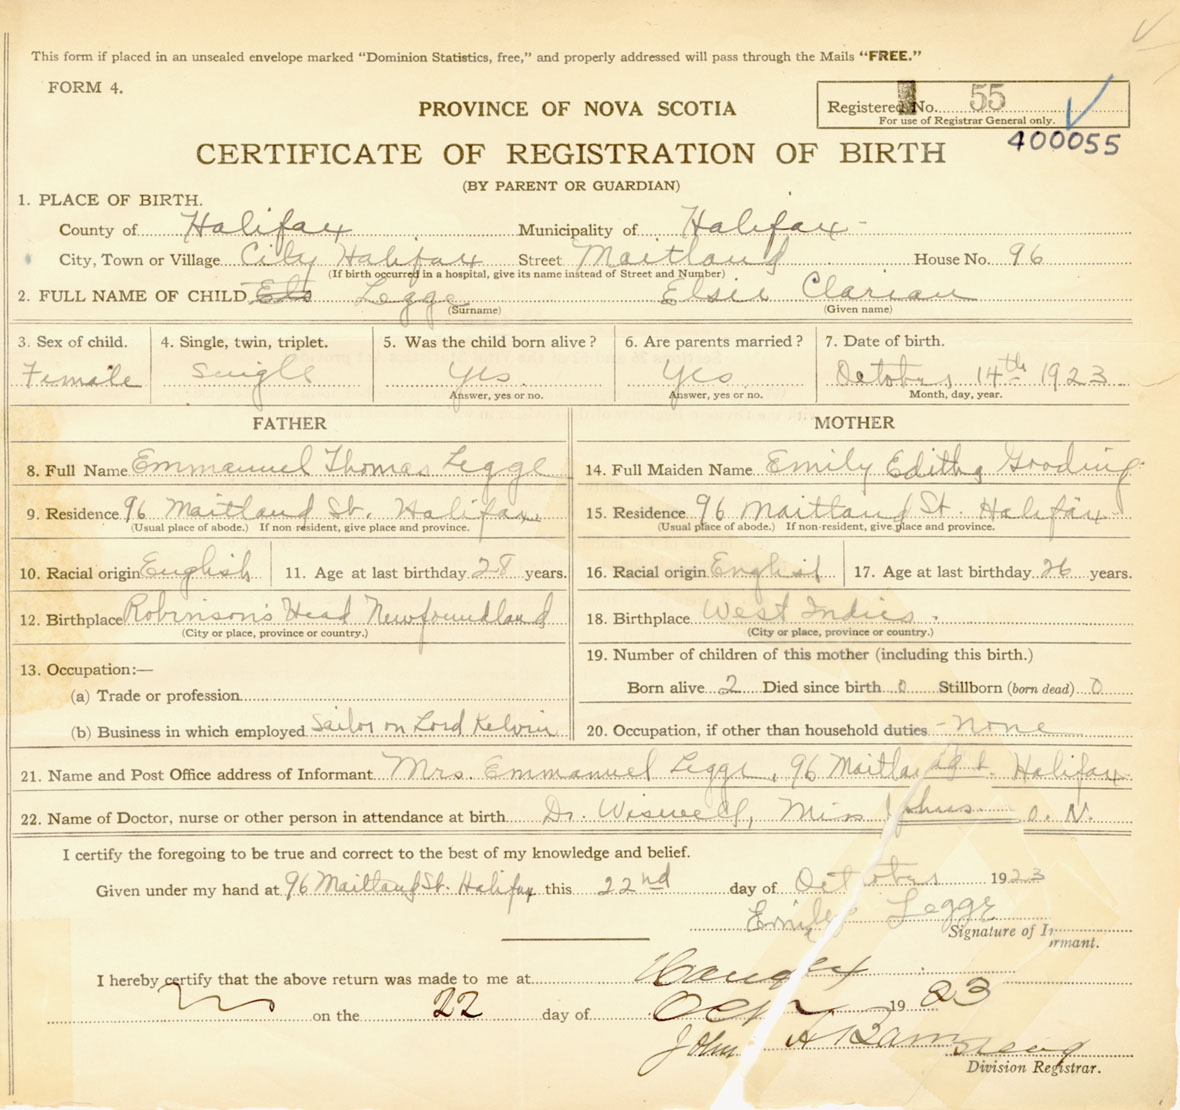 This form if placed in an unsealed envelope marked "Dominion Statistics, free," and properly addressed will pass through the Mails "FREE."
FORM 4.
PROVINCE OF NOVA SCOTIA
Registered No. 55
For use of Registrar General only.
400055
CERTIFICATE OF REGISTRATION OF BIRTH
(BY PARENT OR GUARDIAN)
1. PLACE OF BIRTH.
County of Halifax Municipality of Halifax
City, Town or Village City Halifax Street Maitland House No. 96
(If birth occurred in a hospital, give its name instead of Street and Number)
2. FULL NAME OF CHILD Els Legge Elsie Clarian
(Surname) (Given name)
3. Sex of child. 4. Single, twin, triplet. 5. Was the child born alive? 6. Are parents married? 7. Date of birth.
Female Single Yes Yes October 14th 1923
Answer, yes or no. Answer, yes or no. Month, day, year.
FATHER MOTHER
8. Full Name Emmanuel Thomas Legge 14. Full Maiden Name Emily Edith Gooding
9. Residence 96 Maitland St. Halifax 15. Residence 96 Maitland St. Halifax
(Usual place of abode.) If non resident, give place and province. (Usual place of abode.) If non-resident, give place and province.
10. Racial origin English 11. Age at last birthday 28 years. 16. Racial origin English 17. Age at last birthday 26 years.
12. Birthplace Robinson's Head Newfoundland 18. Birthplace West Indies.
(City or place, province or country.) (City or place, province or country.)
13. Occupation:— 19. Number of children of this mother (including this birth.)
(a) Trade or profession Born alive 2 Died since birth 0 Stillborn (born dead) 0
(b) Business in which employed Sailor on Lord Kelvin 20. Occupation, if other than household duties - None
21. Name and Post Office address of Informant Mrs. Emmanuel Legge, 96 Maitland St. Halifax
22. Name of Doctor, nurse or other person in attendance at birth Dr. Wiswell, Miss O. N.
I certify the foregoing to be true and correct to the best of my knowledge and belief.
Given under my hand at 96 Maitland St. Halifax this 22nd day of October 1923
Emily Legge
Signature of Informant.
I hereby certify that the above return was made to me at Halifax
NS on the 22 day of Oct 1923
John A
Division Registrar.